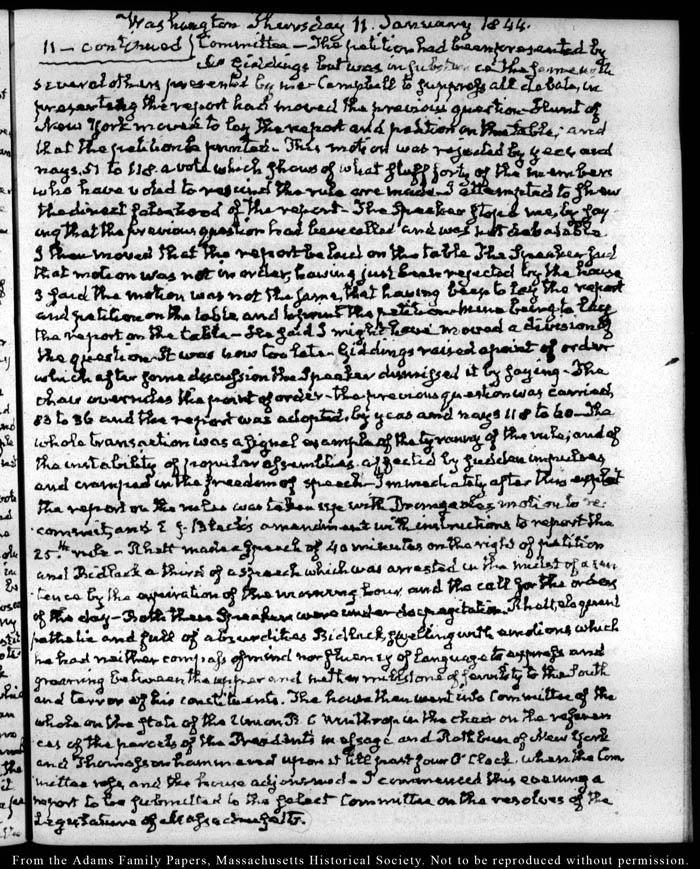 Washington Thursday 11. January 1844.
11 – continued } Committee – The petition had been presented by
Mr Giddings but was in substance the same with
several others presented by me – Campbell to suppress all debate, in
presenting the report had moved the previous question – Hunt of
New York moved to lay the report and petition on the table, and
that the petition be printed – This motion was rejected by yeas and
nays. 51 to 118. a vote which shows of what stuff forty of the members
who have voted to rescind the rule are made – I attempted to shew
the direct falsehood of the report – The Speaker stopp'd me, by say
ing that the previous question had been called and was not debatable
I then moved that the report be laid on the table The Speaker said
that motion was not in order, having just been rejected by the house
I said the motion was not the same, that having been to lay the report
and petition on the table and to print the petition – mine being to lay
the report on the table – He said I might have moved a division of
the question. It was now too late – Giddings raised a point of order
which after some discussion the Speaker dismissed it by saying – The
chair overrules the point of order – the previous question was carried,
83 to 36 and the report was adopted, by yeas and nays 118 to 60 – The
whole transaction was a signal example of the tyranny of the rule; and of
the instability of popular assemblies affected by sudden impulses
and cramped in the freedom of speech – Immediately after this exploit
the report on the rules was taken up with Dromgoole's motion to re-
commit, and E J. Black's amendment with instructions to report the
25th rule – Rhett made a speech of 40 minutes on the right of petition
and Bidlack a third of a speech which was arrested in the midst of a sen
tence by the expiration of the morning hour, and the call for the orders
of the day – Both these Speakers were under Rhett, eloquent
pathetic and full of absurdities Bidlack, swelling with emotions which
he had neither compass of mind nor fluency of language to express and
groaning between the upper and nether millstone of servility to the South
and terror of his constituents. The house then went into Committee of the
whole on the state of the Union R. C Winthrop in the chair on the referen
ces of the parcels of the President's message and Rathbun of New York
and Thomasson hammered upon it till past four O'Clock. when the Com
mittee rose, and the house adjourned – I commenced this evening a
report to be submitted to the select Committee on the resolves of the
Legislature of Massachusetts.
From the Adams Family Papers, Massachusetts Historical Society. Not to be reproduced without permission.